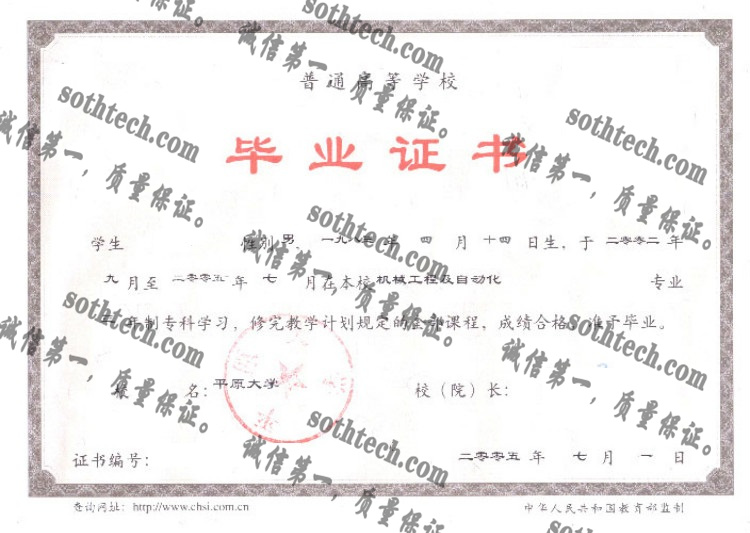 普通高等学校
毕业证书
学生 性别 男, 一九八 年 四 月 十四 日生, 于 二零零二 年
九 月至 二零零五 年 七 月在本校 机械工程及自动化 专业
年制专科学习, 修完教学计划规定的全部课程, 成绩合格, 准予毕业。
校 名: 平原大学 校（院）长:
证书编号: 二零零五 年 七 月 一 日
查询网址: http://www.chsi.com.cn 中华人民共和国教育部监制
sothtech.com
诚信第一，质量保证。
sothtech.com
诚信第一，质量保证。
sothtech.com
诚信第一，质量保证。
sothtech.com
诚信第一，质量保证。
sothtech.com
诚信第一，质量保证。
sothtech.com
诚信第一，质量保证。
sothtech.com
诚信第一，质量保证。